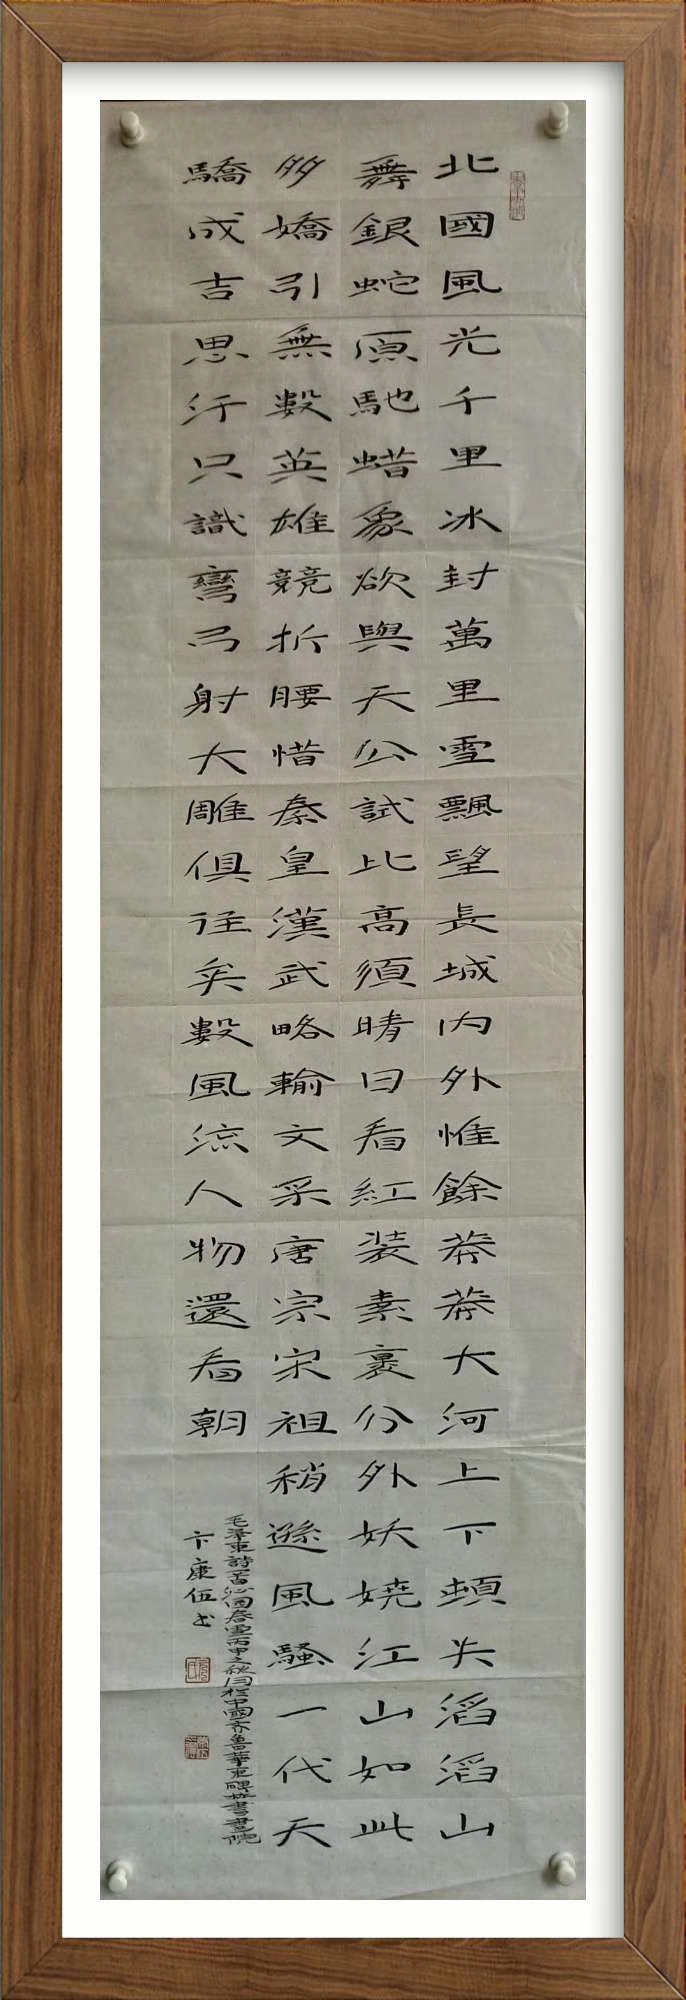 北國風光千里冰封萬里雪飄望長城内外惟餘莽莽大河上下頓失滔滔山
舞銀蛇原馳蜡象欲與天公試比高須晴日看紅装素裹分外妖嬈江山如此
多嬌引無數英雄競折腰惜秦皇漢武略輸文采唐宗宋祖稍遜風騷一代天
驕成吉思汗只識彎弓射大雕俱往矣數風流人物還看朝
毛澤東詩一首沁园春雪丙申之秋月於中國齐魯華東碑林書畫院
卞康伍书